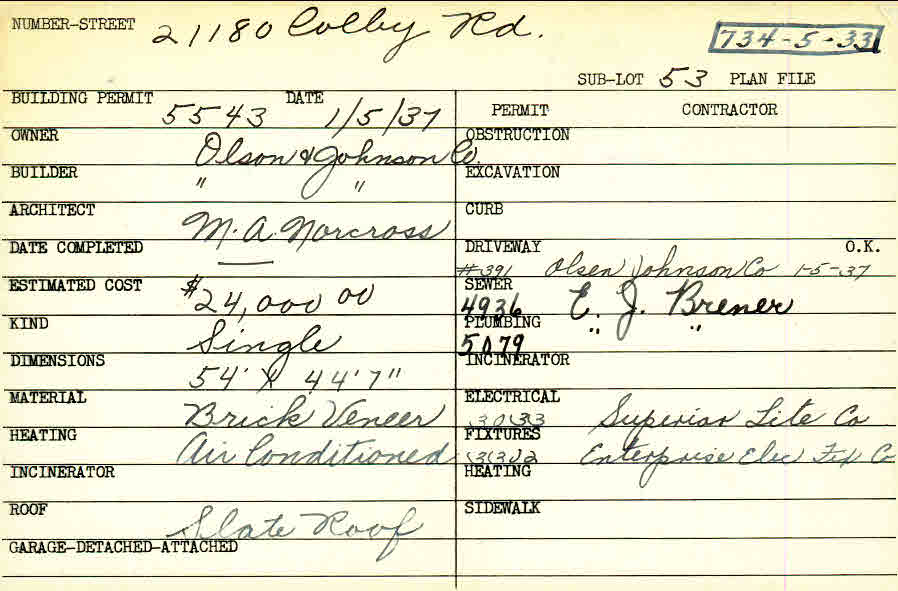 NUMBER-STREET 21180 Colby Rd.
734-5-33
SUB-LOT 53 PLAN FILE
BUILDING PERMIT 5543 DATE 1/5/37
PERMIT CONTRACTOR
OWNER Olson & Johnson Co.
OBSTRUCTION
BUILDER " "
EXCAVATION
ARCHITECT M. A. Norcross
CURB
DATE COMPLETED
DRIVEWAY O.K.
#391 Olsen Johnson Co 1-5-37
ESTIMATED COST $24,000 00
SEWER
4936 E. J. Brener
KIND Single
PLUMBING " "
5079
DIMENSIONS 54' X 44'7"
INCINERATOR
MATERIAL Brick Veneer
ELECTRICAL
Superior Lite Co
HEATING Air Conditioned
FIXTURES
Enterprise Elec Fix Co
INCINERATOR
HEATING
ROOF Slate Roof
SIDEWALK
GARAGE-DETACHED-ATTACHED